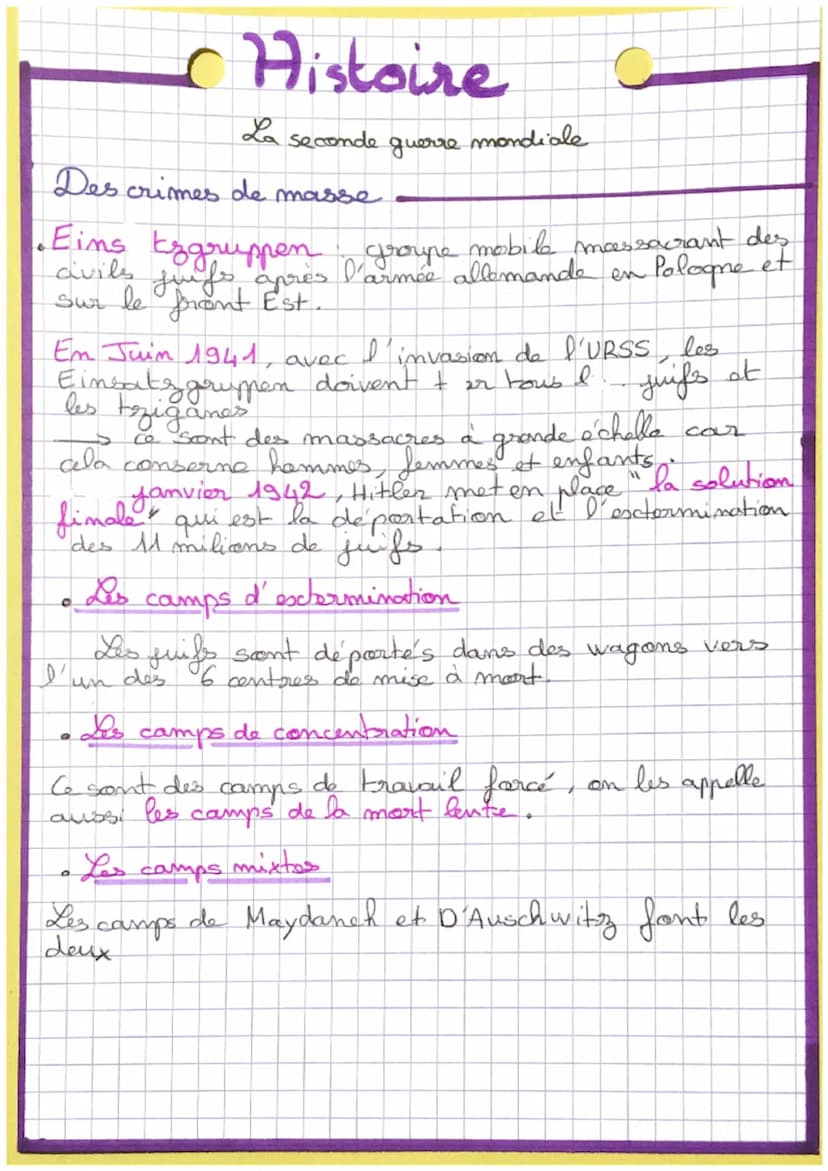 Histoire
La seconde guerre mondiale
Des crimes de masse
. Eins tzgruppen : groupe mobile massacrant des
civils juifs après l'armée allemande en Pologne et
sur le front Est.
En Juin 1941, avec l'invasion de l'URSS, les
Einsatzgruppen doivent t er tous l juifs et
les tziganes
→ ce sont des massacres à grande échelle car
cela conserne hommes, femmes et enfants.
janvier 1942, Hitler met en place "la solution
finale" qui est la déportation et l'extermination
des 11 milions de juifs.
• Les camps d'extermination
Les juifs sont déportés dans des wagons vers
l'un des 6 centres de mise à mort.
• Les camps de concentration
Ce sont des camps de travail forcé, on les appelle
aussi les camps de la mort lente.
• Les camps mixtes
Les camps de Maydanek et D'Auschwitz font les
deux